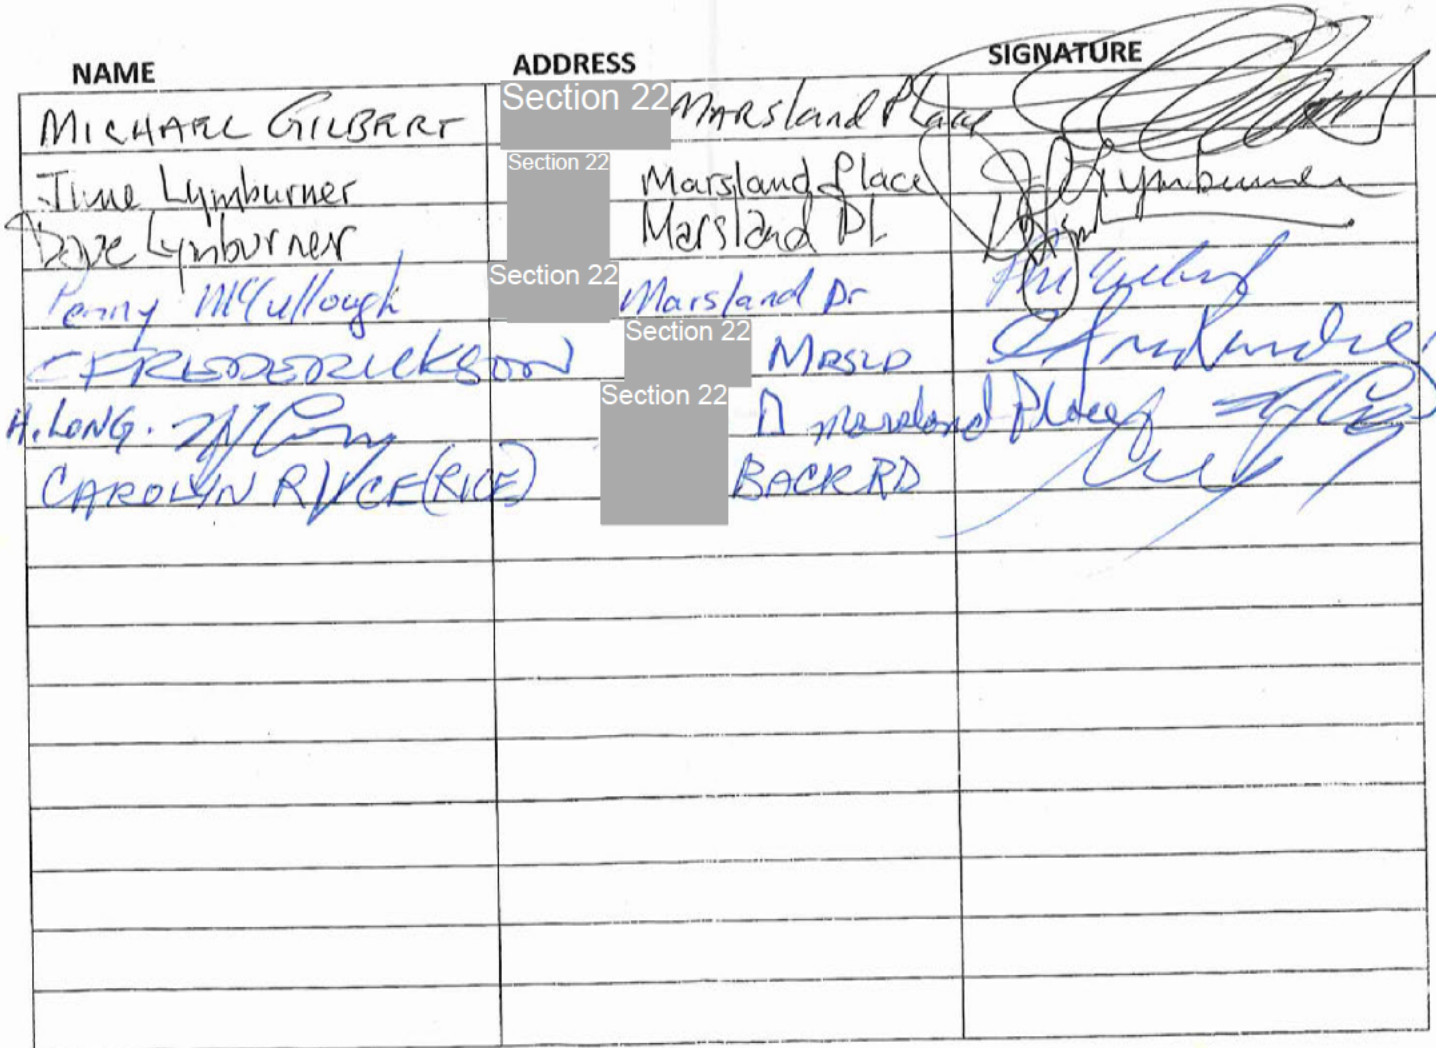 NAME ADDRESS SIGNATURE
MICHAEL GILBERT Section 22 Marsland Place
June Lymburner Section 22 Marsland Place J Lymburner
Dave Lymburner Marsland Pl
Penny McCullough Section 22 Marsland Dr
C FREDERICKSON Section 22 MRSLD
H. LONG. Section 22 Marsland Place
CAROLYN RYCE (RICE) BACK RD